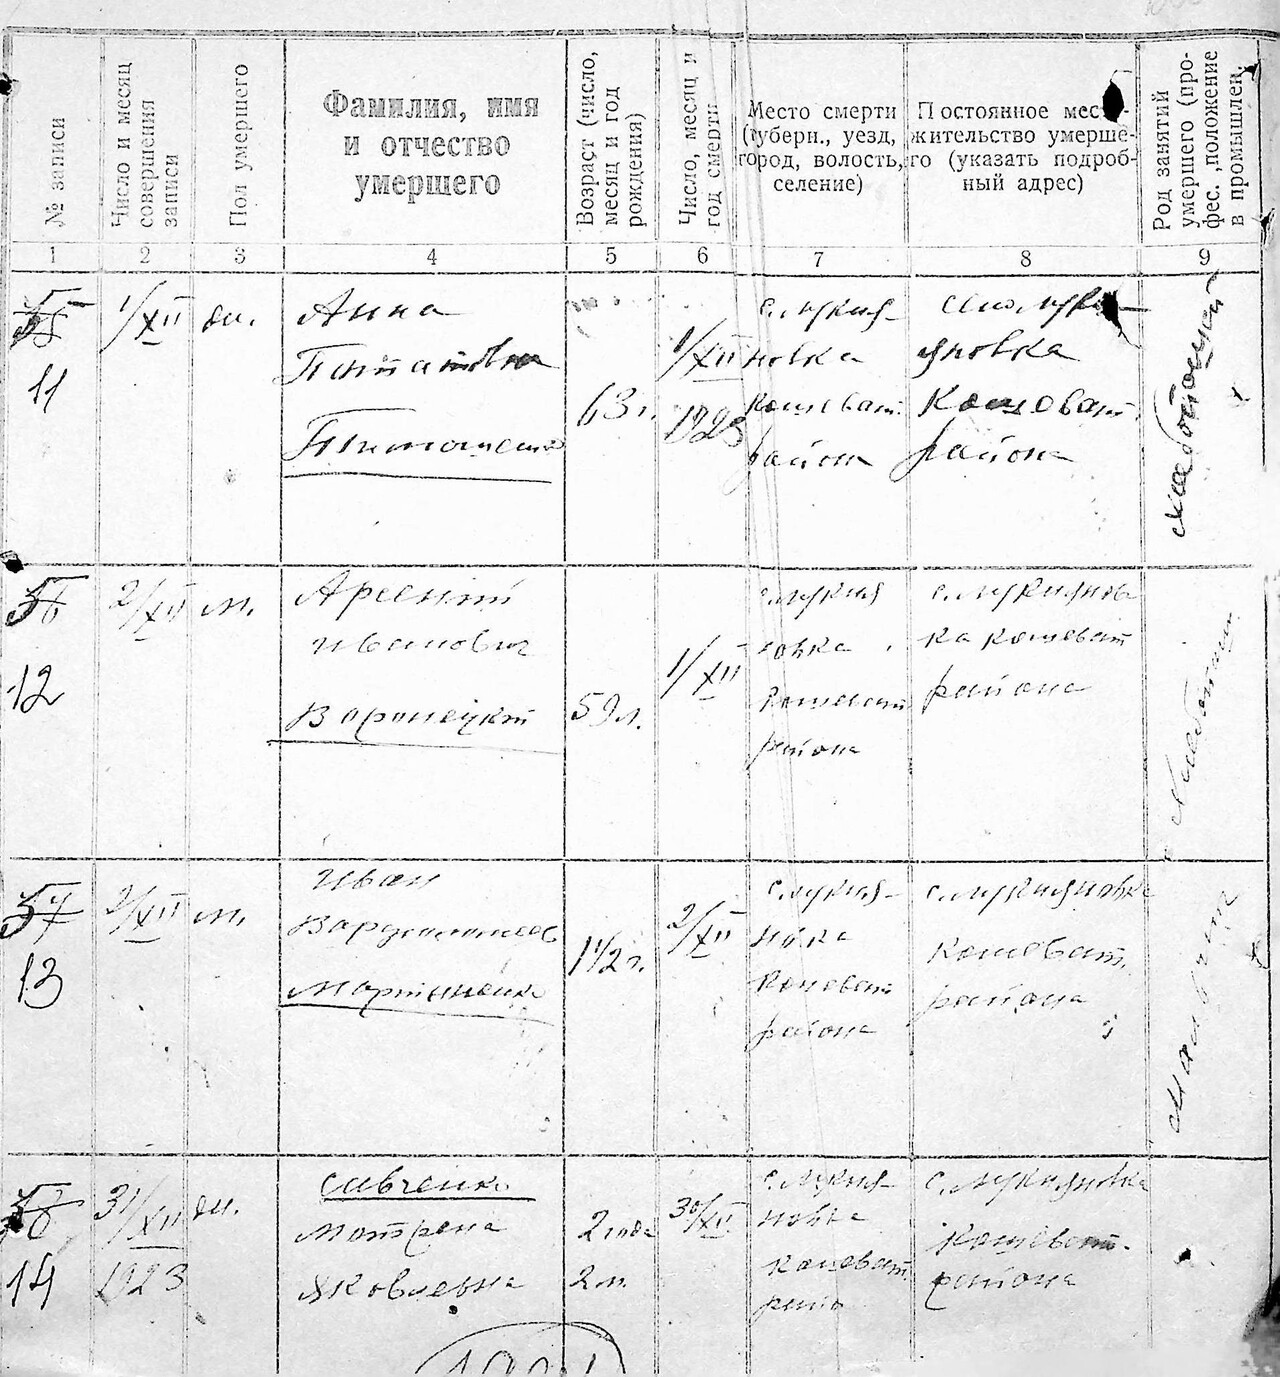 № записи
Число и месяц
совершения
записи
Пол умершего
Фамилия, имя
и отчество
умершего
Возраст (число,
месяц и год
рождения)
Число, месяц и
год смерти
Место смерти
(губерн., уезд,
город, волость,
селение)
Постоянное мес
жительство умерше-
го (указать подроб-
ный адрес)
Род занятий
умершего (про-
фес., положение
в промышлен.
1 2 3 4 5 6 7 8 9
55
11
1/XII
Анна
Тимошенко
63 г.
1/XII
1923
с. Лукия-
новка
Кошеват.
район
Лукия
яновка
Кошеват.
района
56
12
2/XII
м.
Арсений
Иванович
Воронецкий
59 л.
1/XII
с. Лукия
новка
Кошеват
района
с. Лукиянов
ка Кошеват
района
57
13
2/XII
м.
Иван
Мартыненко
1 1/2 г.
2/XII
с. Лукия-
новка
Кошеват
района
с. Лукияновка
Кошеват.
района
58
14
31/XII
1923
Савченко
Матрена
Яковлевна
2 года
2 м.
30/XII
с. Лукия-
новка
Кошеват.
с. Лукияновка
Кошеват.
района